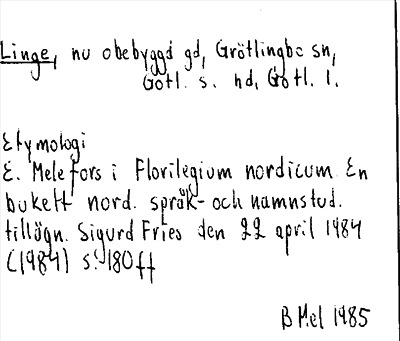 Linge, nu obebyggd gd, Grötlingbo sn,
Gotl. s. hd, Gotl. l.
Etymologi
E. Melefors i Florilegium nordicum. En
bukett nord. språk- och namnstud.
tillägn. Sigurd Fries den 22 april 1984
(1984) s. 180 ff
B Mel 1985